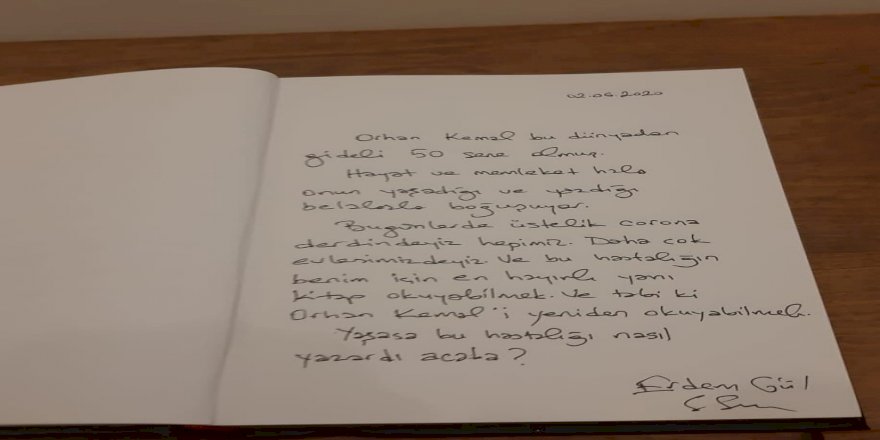 02.06.2020
Orhan Kemal bu dünyadan
gideli 50 sene olmuş.
Hayat ve memleket hala
onun yaşadığı ve yazdığı
belalarla boğuşuyor.
Bugünlerde üstelik corona
derdindeyiz hepimiz. Daha çok
evlerimizdeyiz. Ve bu hastalığın
benim için en hayırlı yanı
kitap okuyabilmek. Ve tabi ki
Orhan Kemal'i yeniden okuyabilmek.
Yaşasa bu hastalığı nasıl
yazardı acaba?
Erdem Gül